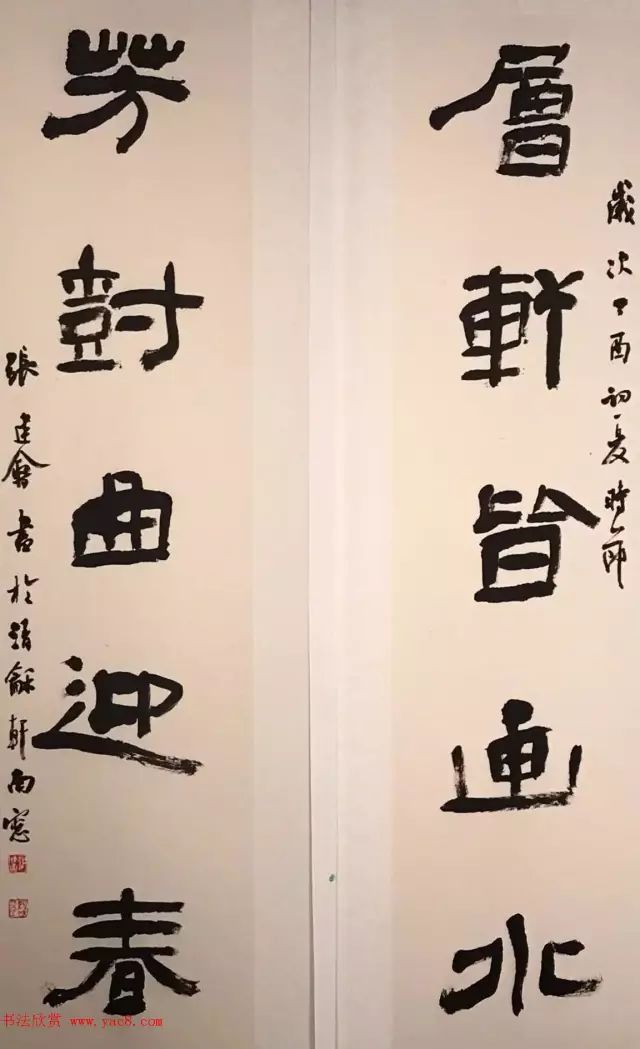 歲次丁酉初夏時節
層軒皆画水
芳尌曲迎春
張建會書於龢軒南窓
书法欣赏 www.yac8.com